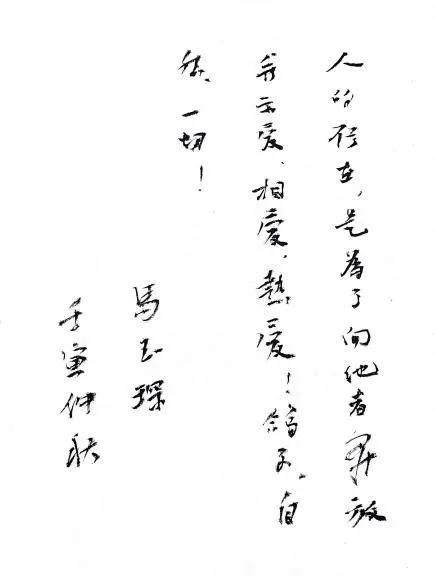 人的存在，是為了向他者開放
示愛、相愛、熱愛！自
然、一切！
馬玉琛
壬寅仲秋